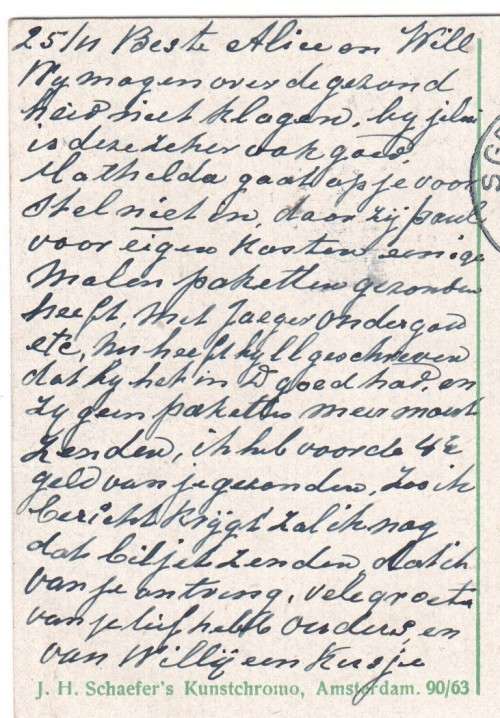 25/11 Beste Alice en Will
Wij mogen over de gezond
heid niet klagen, bij jelui
is deze zeker ook goed
Mathilda gaat op je voor
stel niet in, daar zij Paul
voor eigen kosten eenige
malen paketten gezonden
heeft, met Jaeger ondergoed
etc, nu heeft hij geschreven
dat hij het in D goed had, en
zij geen paketten meer moest
zenden, ik heb voor de 4e
geld van je gezonden, zoo ik
bericht krijgt zal ik nog
dat biljet zenden, dat ik
van je ontving, vele groete
van je liefhebb Ouders, en
van Willy een Kusje
J. H. Schaefer's Kunstchromo, Amsterdam. 90/63
SG